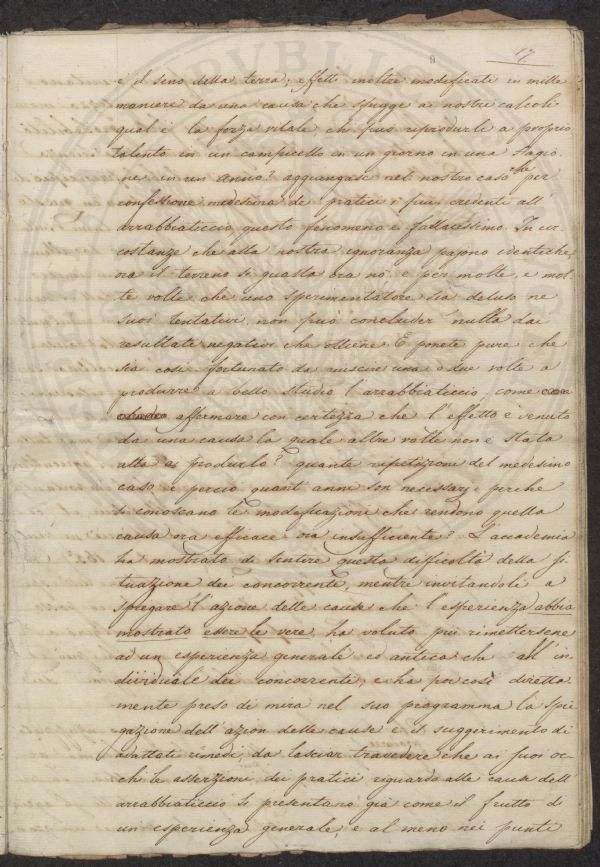 17
e il seno della terra, effetti inoltre modificati in mille
maniere da una causa che sfugge a nostri calcoli
qual è la forza vitale, chi può riprodurli a proprio
talento in un campicello in un giorno in una stagio-
ne, in un anno? aggiungasi nel nostro caso che per
confessione medesima de' pratici i più credenti all'
arrabbiaticcio questo fenomeno è fallacissimo. In cir-
costanze che alla nostra ignoranza pajono identiche
ora il terreno si guasta ora nò: e per molte, e mol-
te volte che uno sperimentatore sia deluso ne
suoi tentativi non può concluder nulla dai
resultati negativi che ottiene. E ponete pure che
sia così fortunato da riuscire una o due volte a
produrre a bello studio l'arrabbiaticcio, come
affermare con certezza che l'effetto è venuto
da una causa la quale altre volte non è stata
atta a produrlo? quante ripetizioni del medesimo
caso e perciò quant'anni son necessarj perchè
si conoscano le modificazioni che rendono quella
causa ora efficace ora insufficiente? L'accademia
ha mostrato di sentire questa difficoltà della si-
tuazione dei concorrenti, mentre invitandoli a
spiegare l'azione delle cause che l'esperienza abbia
mostrato essere le vere, ha voluto più rimettersene
ad un esperienza generale ed antica che all'in-
dividuale dei concorrenti, e ha per così diretta-
mente preso di mira nel suo programma la spie-
gazione dell'azion delle cause e il suggerimento di
adattati rimedi, da lasciar travedere che ai suoi oc-
chi le asserzioni dei pratici riguardo alle cause dell'
arrabbiaticcio si presentano già come il frutto di
un esperienza generale, e al meno nei punti